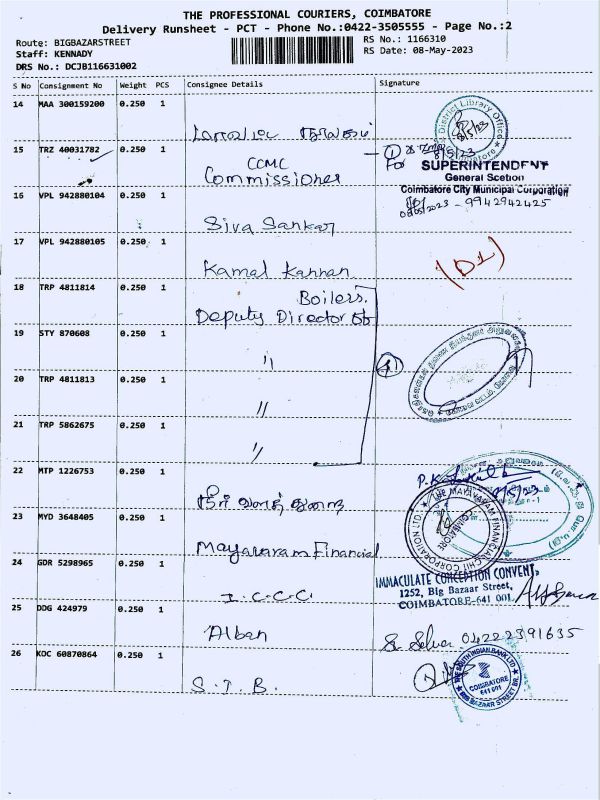 THE PROFESSIONAL COURIERS, COIMBATORE
Delivery Runsheet - PCT - Phone No.:0422-3505555 - Page No.:2
Route: BIGBAZARSTREET
RS No.: 1166310
Staff: KENNADY
RS Date: 08-May-2023
DRS No.: DCJB116631002
S No Consignment No Weight PCS Consignee Details Signature
14 MAA 300159200 0.250 1
District Library Office
Coimbatore
8/5/23
15 TRZ 40031782 0.250 1 CCMC
Commissioner
8/5/23
For SUPERINTENDENT
General Scetion
Coimbatore City Municipal Corporation
16 VPL 942880104 0.250 1 Siva Sankar
08/05/2023 - 9942942425
17 VPL 942880105 0.250 1 Kamal Kannan
(D1)
18 TRP 4811814 0.250 1 Boilers.
Deputy Director of
19 STY 870608 0.250 1 "
20 TRP 4811813 0.250 1 "
21 TRP 5862675 0.250 1 "
22 MTP 1226753 0.250 1 நீர் வளத் துறை
8/5/23
23 MYD 3648405 0.250 1 Mayavaram Financial
THE MAYAVARAM FINANCIAL CHIT CORPORATION LTD
24 GDR 5298965 0.250 1 I.C.C.C
IMMACULATE CONCEPTION CONVENT,
1252, Big Bazaar Street,
COIMBATORE-641 001.
25 DDG 424979 0.250 1 Alban
Selva 04222391635
26 KOC 60870864 0.250 1 S.I.B.
THE SOUTH INDIAN BANK LTD
COIMBATORE
641 001
BIG BAZAAR STREET BR.